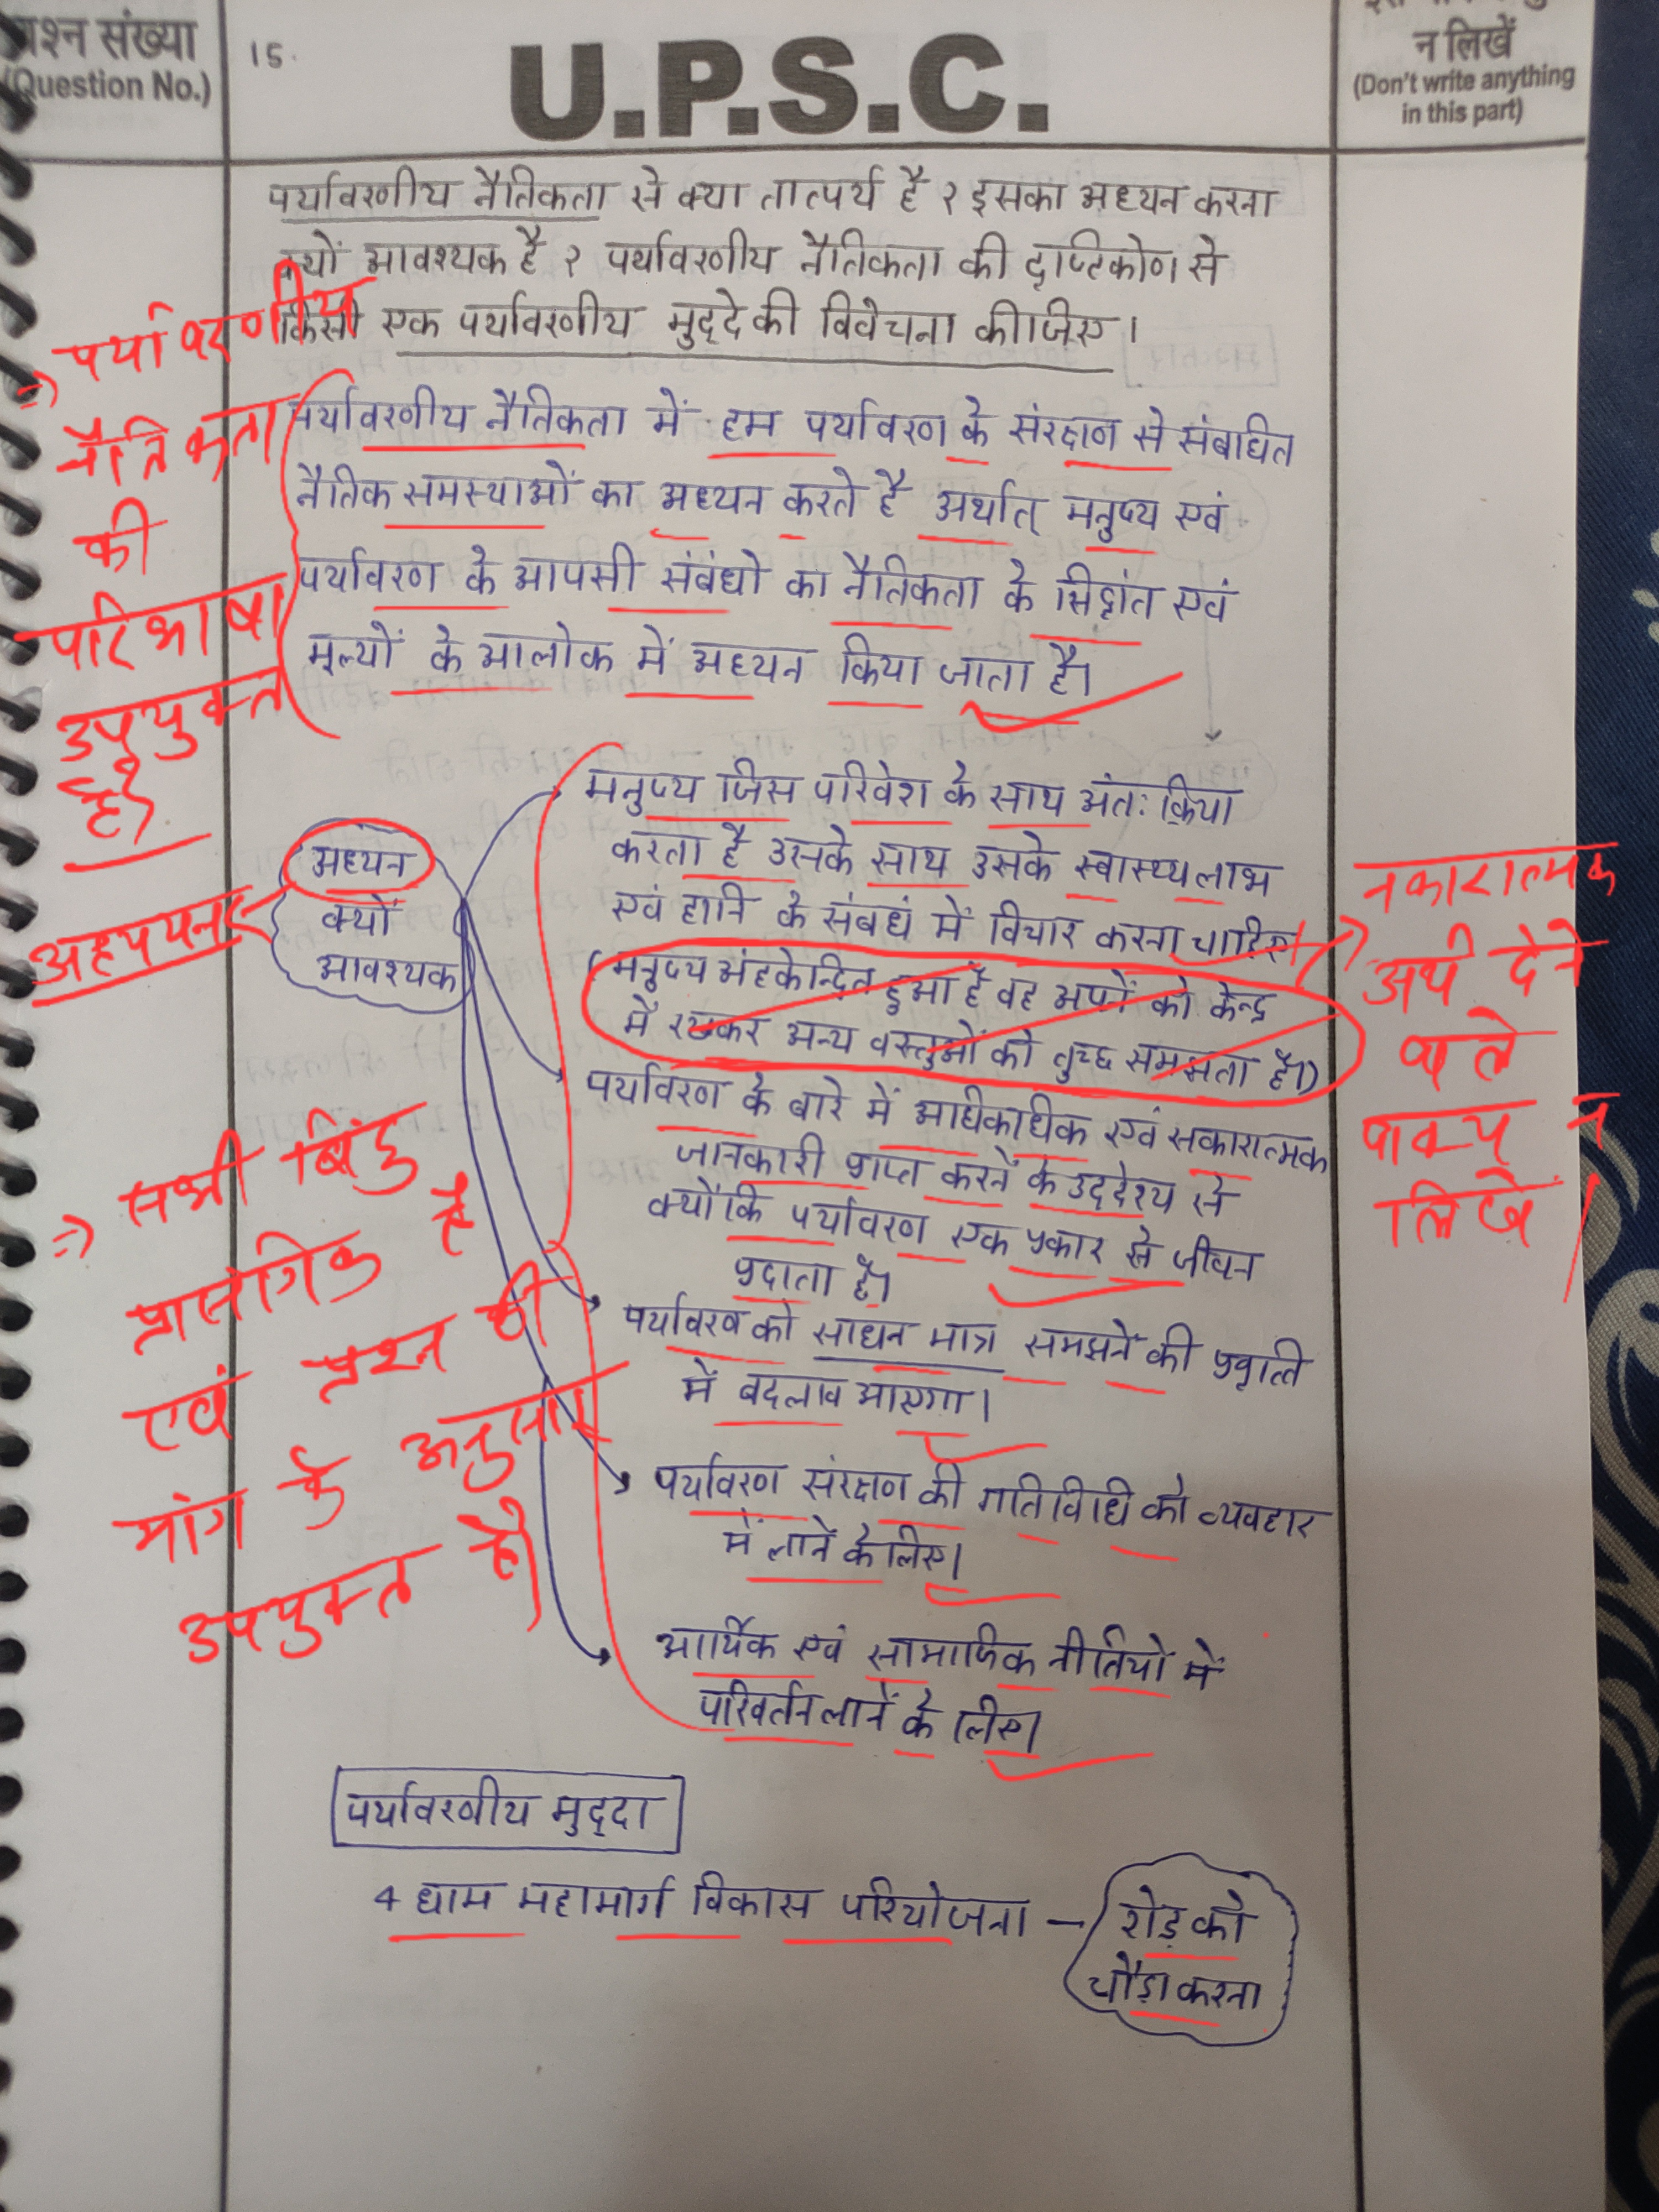 प्रश्न संख्या
(Question No.)
15.
U.P.S.C.
न लिखें
(Don't write anything
in this part)
पर्यावरणीय नैतिकता से क्या तात्पर्य है ? इसका अध्यन करना
क्यों आवश्यक है ? पर्यावरणीय नैतिकता की दृष्टिकोण से
किसी एक पर्यावरणीय मुद्दे की विवेचना कीजिए।
=> पर्यावरणीय
नैतिकता
की
परिभाषा
उपयुक्त
है।
पर्यावरणीय नैतिकता में हम पर्यावरण के संरक्षण से संबंधित
नैतिक समस्याओं का अध्यन करते है अर्थात् मनुष्य एवं
पर्यावरण के आपसी संबंधो का नैतिकता के सिद्वांत एवं
मूल्यों के आलोक में अध्यन किया जाता है।
अध्यन
क्यों
आवश्यक
मनुष्य जिस परिवेश के साथ अंतः क्रिया
करता है उसके साथ उसके स्वास्थ्य लाभ
एवं हानि के संबधं में विचार करना चाहिए
(मनुष्य अंहकेन्द्रित हुआ है वह अपने को केन्द्र
में रखकर अन्य वस्तुओं को तुच्छ समझता है।)
नकारात्मक
अर्थ देने
वाले
वाक्य न
लिखें।
पर्यावरण के बारे में अधिकाधिक एवं सकारात्मक
जानकारी प्राप्त करने के उद्देश्य से
क्योंकि पर्यावरण एक प्रकार से जीवन
प्रदाता है।
पर्यावरण को साधन मात्र समझने की प्रवृत्ति
में बदलाव आएगा।
पर्यावरण संरक्षण की गतिविधि को व्यवहार
में लाने के लिए।
आर्थिक एवं सामाजिक नीतियों में
परिवर्तन लाने के लिए।
=> सभी बिंदु
प्रासंगिक है
एवं प्रश्न की
मांग के अनुसार
उपयुक्त है।
पर्यावरणीय मुद्दा
4 धाम महामार्ग विकास परियोजना –
रोड़ को
चौड़ा करना